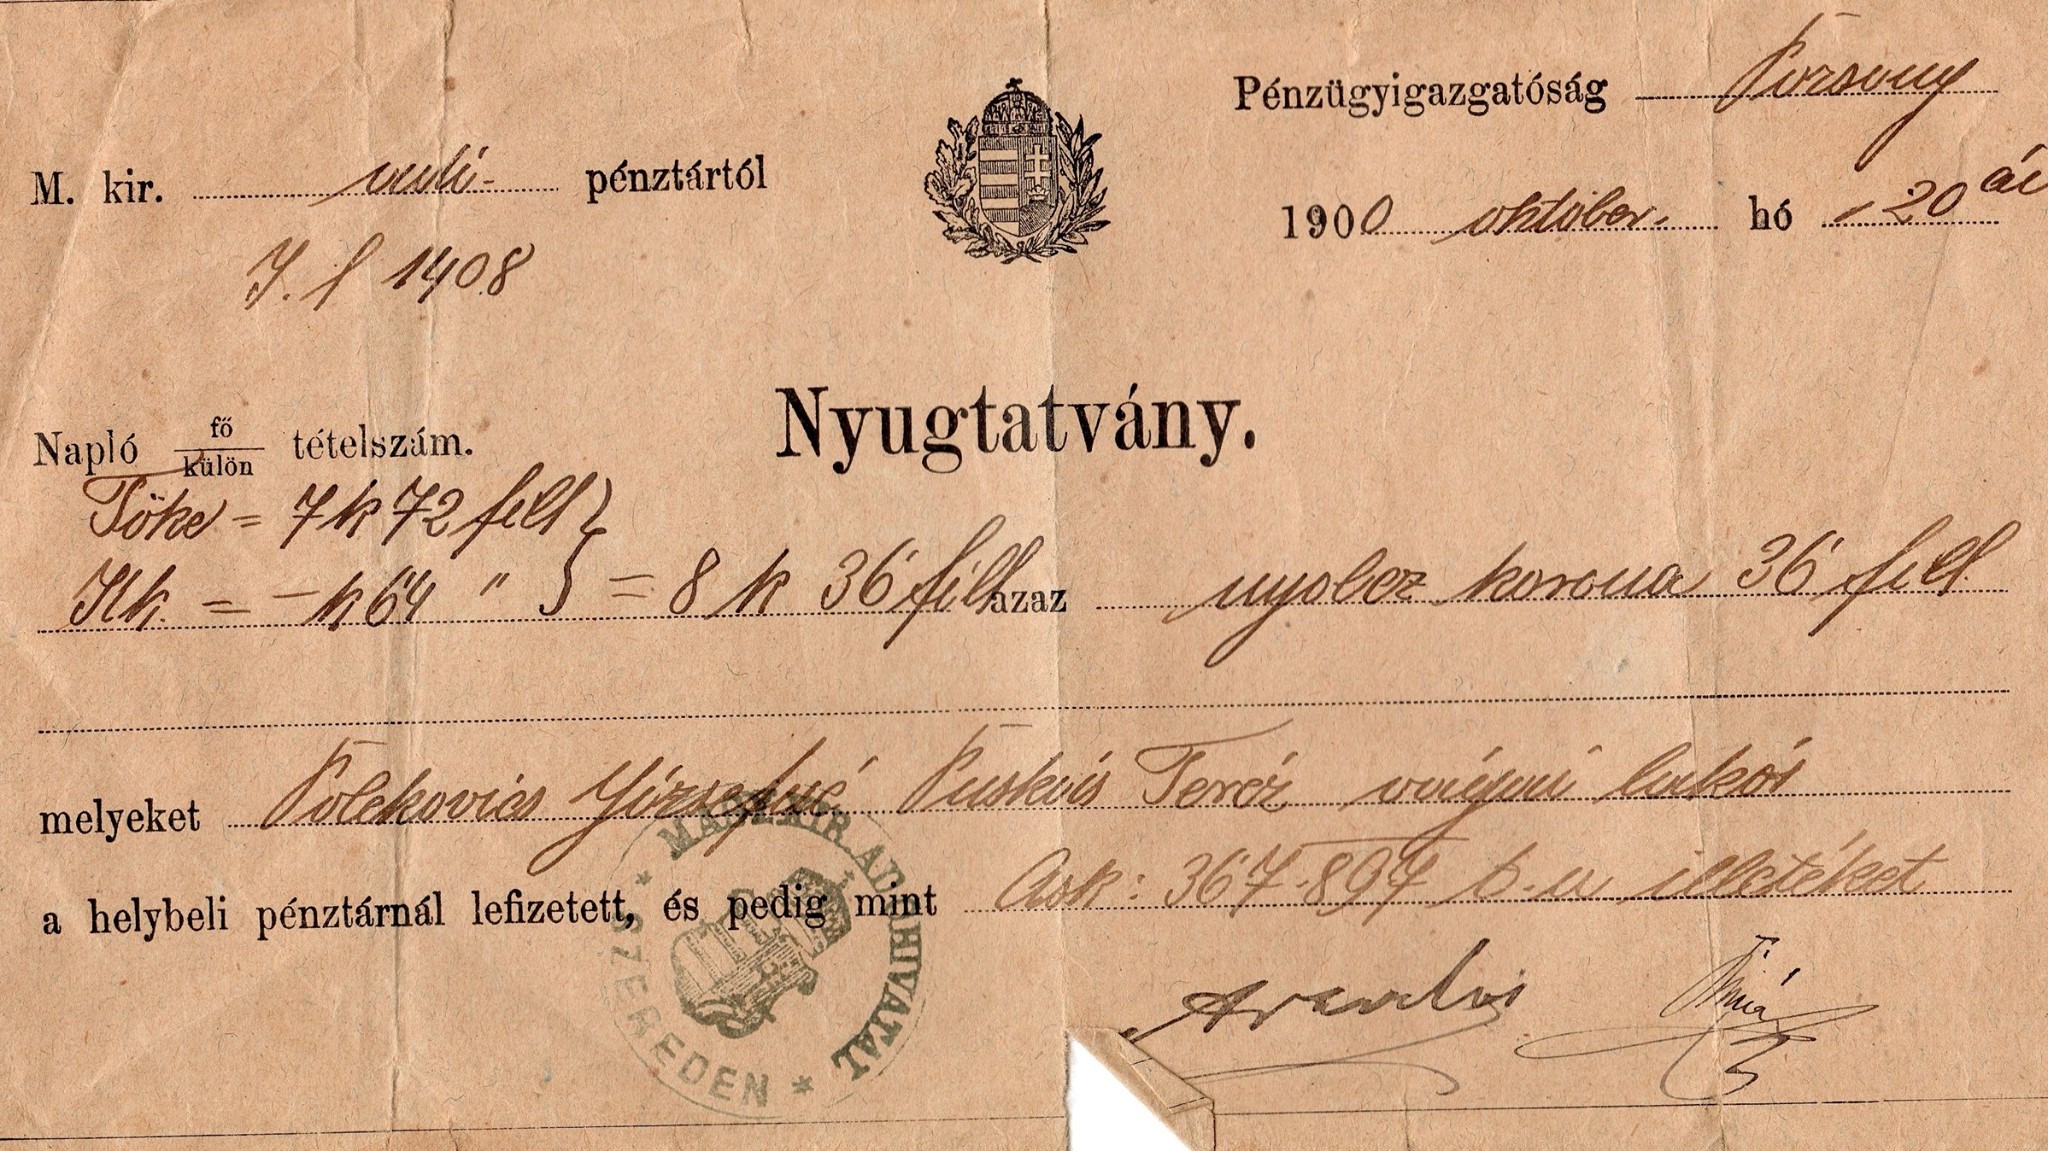 Pénzügyigazgatóság Pozsony
M. kir. adó- pénztártól
1900 október hó 20 án
J. f 1408
Nyugtatvány.
Napló fő/külön tételszám.
Tőke = 7 k 72 fill
Kk. = - k 64 " } = 8 k 36 fill azaz nyolcz korona 36 fill
melyeket Polekovics Józsefné Puskás Teréz vágai lakos
a helybeli pénztárnál lefizetett, és pedig mint Ask: 367-897 b.u illetéket
MAGY. KIR. ADÓHIVATAL
* SZEREDEN *